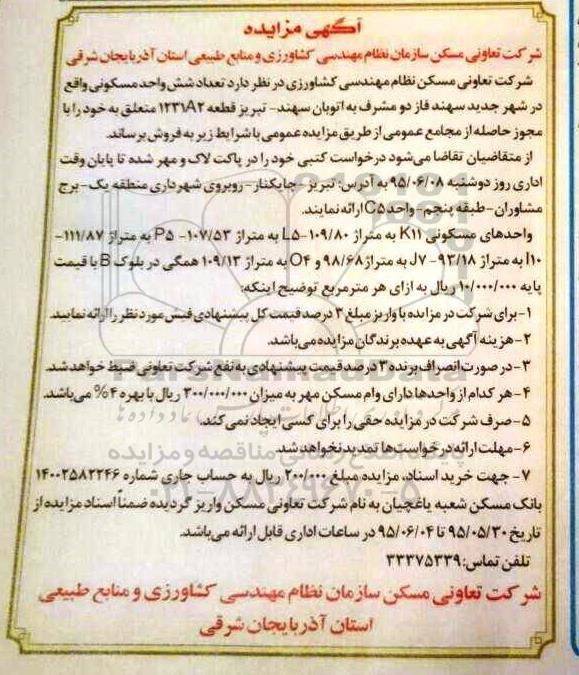 آگهی مزایده
شرکت تعاونی مسکن سازمان نظام مهندسی کشاورزی و منابع طبیعی استان آذربایجان شرقی
شرکت تعاونی مسکن نظام مهندسی کشاورزی در نظر دارد تعداد شش واحد مسکونی واقع
در شهر جدید سهند فاز دو مشرف به اتوبان سهند- تبریز قطعه ۱۲۳۱A۲ متعلق به خود را با
مجوز حاصله از مجامع عمومی از طریق مزایده عمومی با شرایط زیر به فروش برساند.
از متقاضیان تقاضا می‌شود درخواست کتبی خود را در پاکت لاک و مهر شده تا پایان وقت
اداری روز دوشنبه ۹۵/۰۶/۰۸ به آدرس: تبریز-چایکنار-روبروی شهرداری منطقه یک- برج
مشاوران-طبقه پنجم-واحد C۵ ارائه نمایند.
واحدهای مسکونی K۱۱ به متراژ ۱۰۹/۸۰-L۵ به متراژ ۱۰۷/۵۳- P۵ به متراژ ۱۱۱/۸۷-
I۱۰ به متراژ ۹۳/۱۸- J۷ به متراژ ۹۸/۶۸ و O۴ به متراژ ۱۰۹/۱۳ همگی در بلوک B با قیمت
پایه ۱۰/۰۰۰/۰۰۰ ریال به ازای هر مترمربع توضیح اینکه:
۱-برای شرکت در مزایده با واریز مبلغ ۳ درصد قیمت کل پیشنهادی فیش مورد نظر را ارائه نمایید.
۲-هزینه آگهی به عهده برندگان مزایده می‌باشد.
۳-در صورت انصراف برنده ۳ درصد قیمت پیشنهادی به نفع شرکت تعاونی ضبط خواهد شد.
۴-هر کدام از واحدها دارای وام مسکن مهر به میزان ۳۰۰/۰۰۰/۰۰۰ ریال با بهره ۴% می‌باشد.
۵-صرف شرکت در مزایده حقی را برای کسی ایجاد نمی کند.
۶-مهلت ارائه درخواست‌ها تمدید نخواهد شد.
۷- جهت خرید اسناد، مزایده مبلغ ۲۰۰/۰۰۰ ریال به حساب جاری شماره ۱۴۰۰۲۵۸۲۲۴۶
بانک مسکن شعبه یاغچیان به نام شرکت تعاونی مسکن واریز گردیده ضمناً اسناد مزایده از
تاریخ ۹۵/۰۵/۳۰ تا ۹۵/۰۶/۰۴ در ساعات اداری قابل ارائه می‌باشد.
تلفن تماس: ۳۳۳۷۵۳۳۹
شرکت تعاونی مسکن سازمان نظام مهندسی کشاورزی و منابع طبیعی
استان آذربایجان شرقی
ParsNamadData
۰۲۱-۸۸۳۴۹۶۷۰-۵